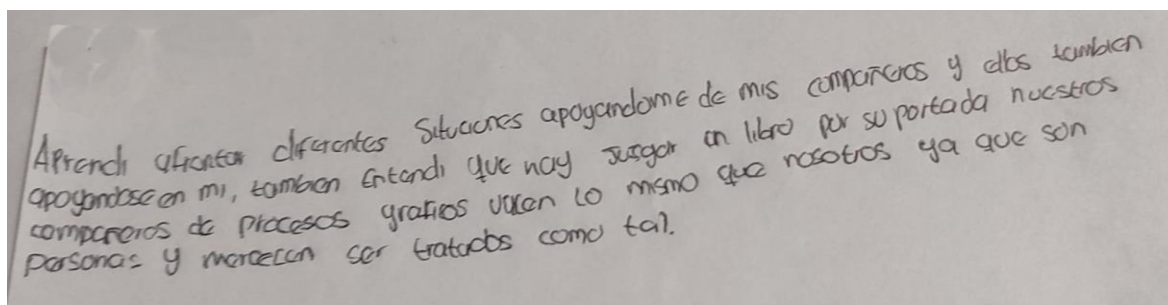 Aprendi afrontar diferentes situaciones apoyandome de mis compañeros y ellos tambien
apoyandose en mi, tambien entendi que nay jusgar un libro por su portada nuestros
compañeros de procesos grafios valen lo mismo que nosotros ya que son
personas y merecen ser tratados como tal.